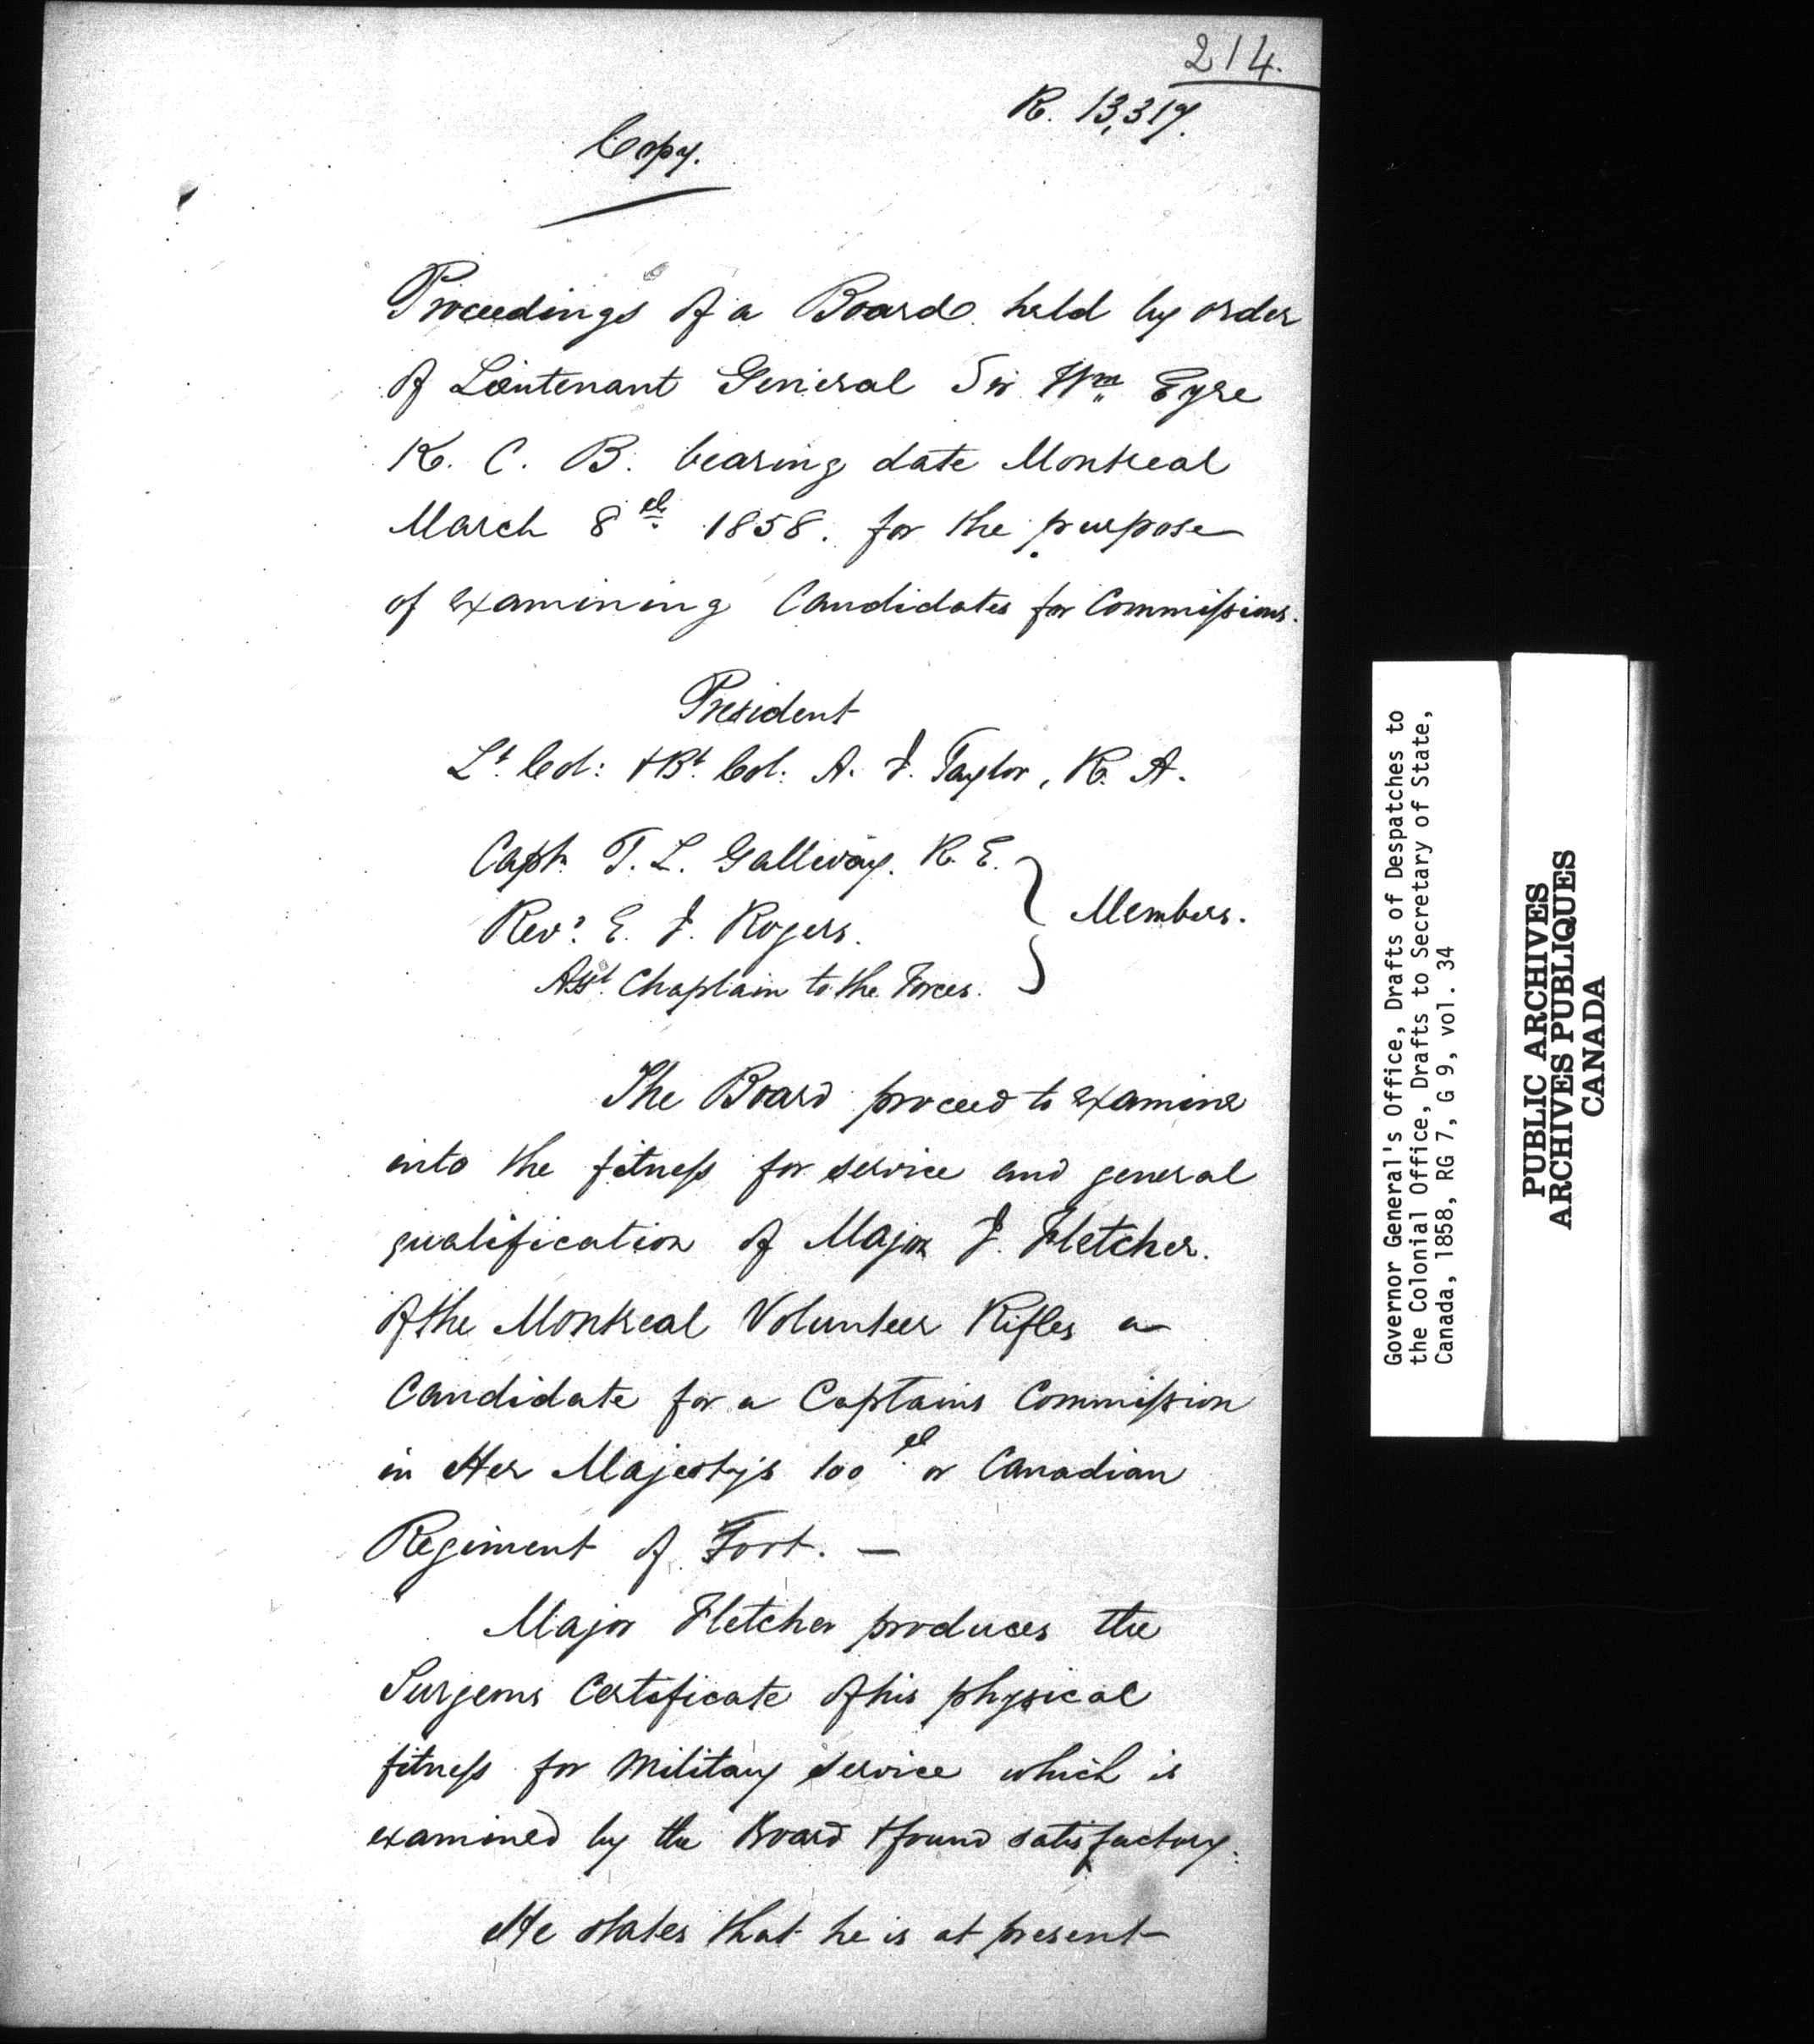 214.
R. 13,317.
Copy.
Proceedings of a Board held by order
of Lieutenant General Sir Wm. Eyre
K. C. B. bearing date Montreal
March 8th 1858. for the purpose
of examining Candidates for Commissions.
President
Lt. Col: & Bt. Col. A. J. Taylor, R. A.
Capt. T. L. Gallwey. R. E.
Revd. E. J. Rogers.
Asst. Chaplain to the Forces.
Members.
The Board proceed to examine
into the fitness for service and general
qualification of Major J. Fletcher.
of the Montreal Volunteer Rifles a
Candidate for a Captains Commission
in Her Majesty's 100th or Canadian
Regiment of Foot. —
Major Fletcher produces the
Surgeons Certificate of his physical
fitness for Military service which is
examined by the Board & found satisfactory.
He states that he is at present
Governor General's Office, Drafts of Despatches to
the Colonial Office, Drafts to Secretary of State,
Canada, 1858, RG 7, G 9, vol. 34
PUBLIC ARCHIVES
ARCHIVES PUBLIQUES
CANADA